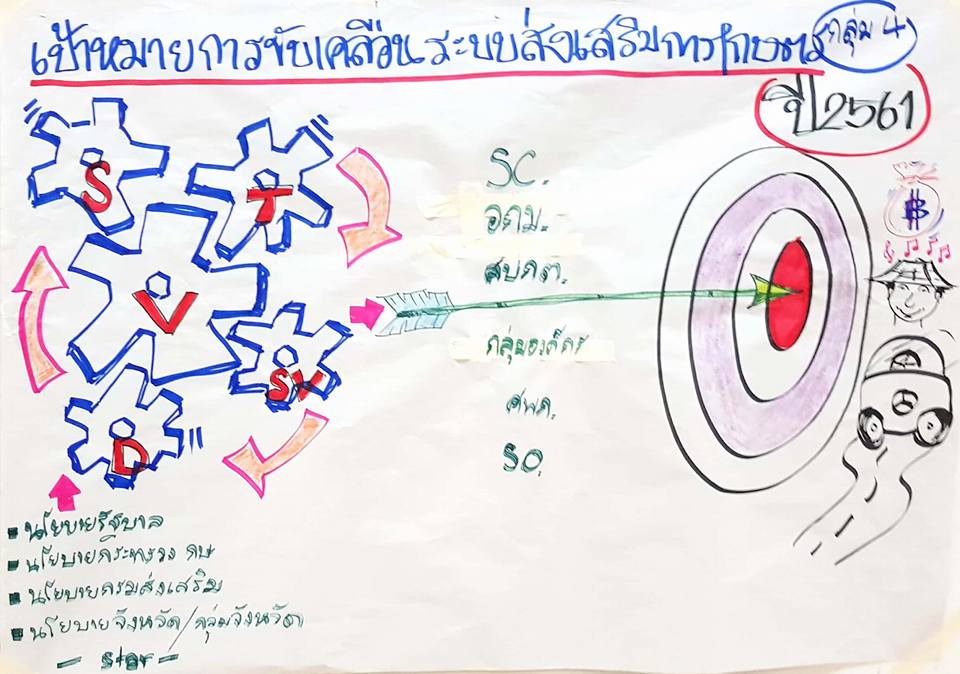 เป้าหมายการขับเคลื่อนระบบส่งเสริมการเกษตร
กลุ่ม 4
ปี 2561
S
T
V
SV
D
SC.
อกม.
สบกต.
กลุ่มองค์กร
ศพก.
SO.
฿
▪ นโยบายรัฐบาล
▪ นโยบายกระทรวง กษ
▪ นโยบายกรมส่งเสริม
▪ นโยบายจังหวัด/กลุ่มจังหวัด
- star -